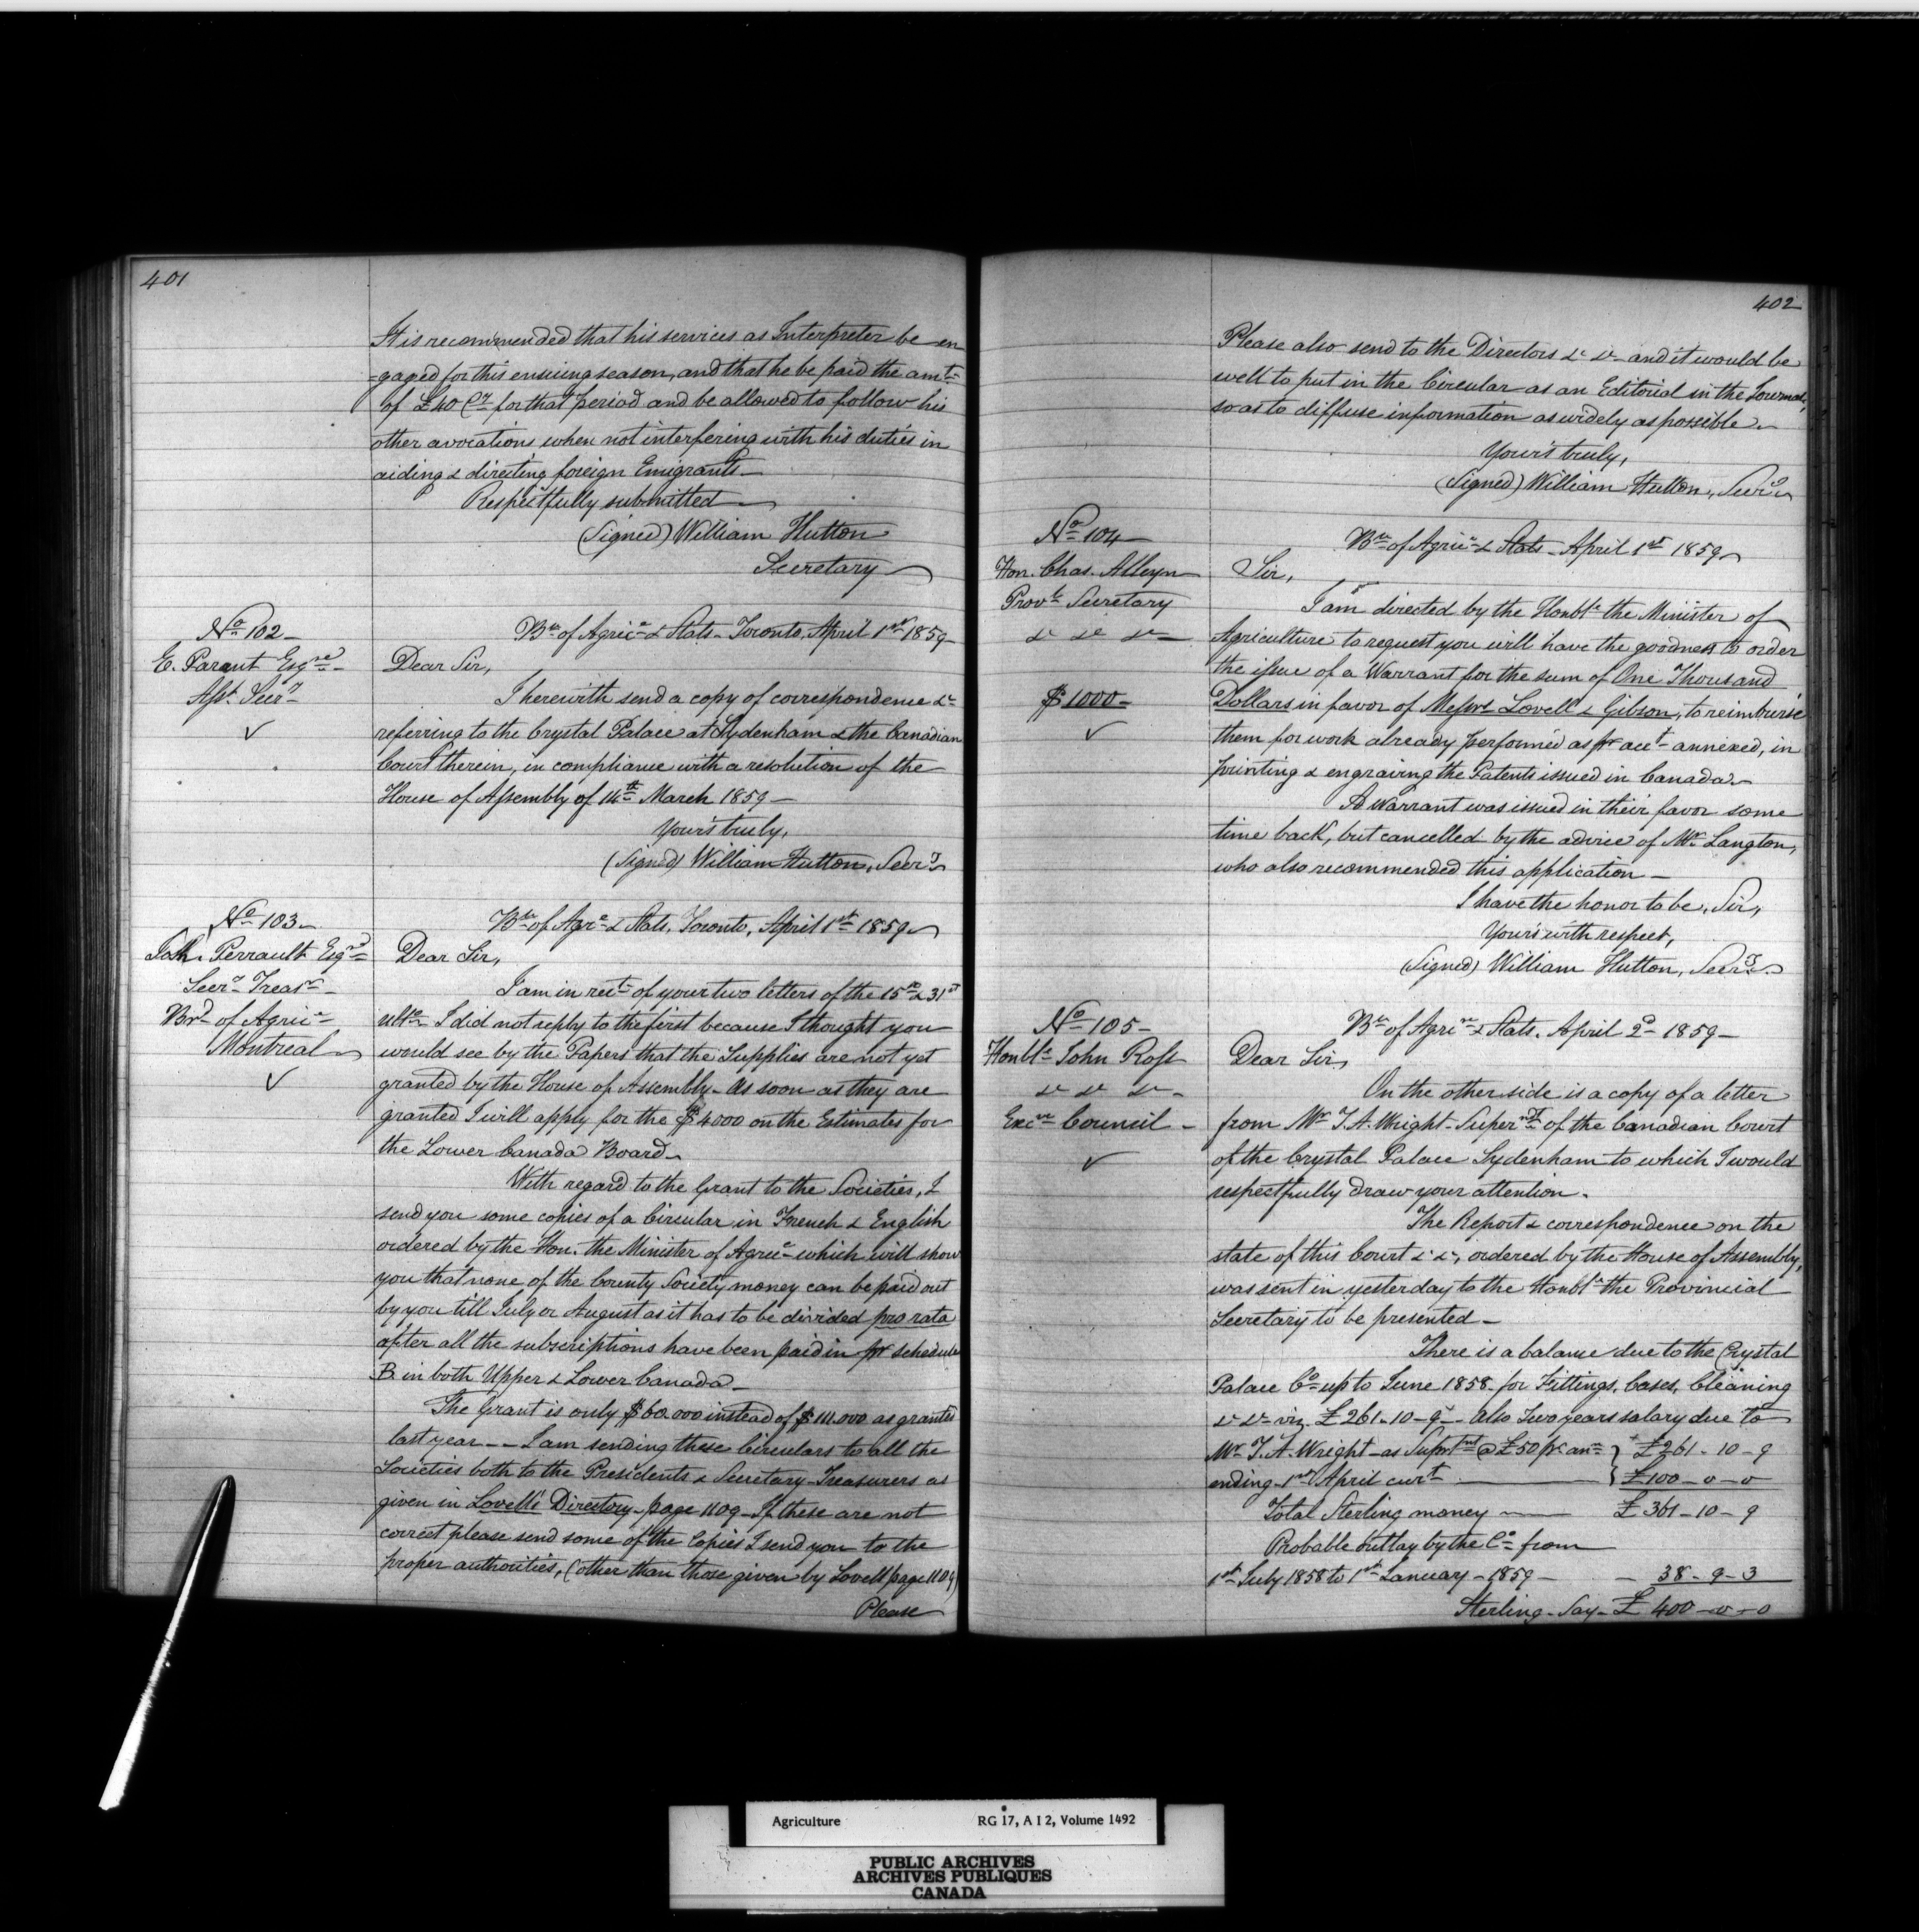 401
It is recommended that his services as Interpreter be en
=gaged for this ensuing season, and that he be paid the amt
of £40 Cy for that period and be allowed to follow his
other avocations when not interfering with his duties in
aiding & directing foreign Emigrants_
Respectfully submitted
(Signed) William Hutton
Secretary
No 102_
E. Parent Esqre
Asst Secry
Bu of Agric & Stats_ Toronto, April 1st 1859
Dear Sir,
I herewith send a copy of correspondence &c
referring to the Crystal Palace at Sydenham & the Canadian
Court therein, in compliance with a resolution of the
House of Assembly of 14th March 1859_
Yours truly,
(Signed) William Hutton, Secry
No 103
Perrault Esqre
Secry Treasr
Brd of Agric
Montreal
Bu of Agr & Stats, Toronto, April 1st 1859
Dear Sir,
I am in rect of your two letters of the 15th & 31st
ulto I did not reply to the first because I thought you
would see by the Papers that the Supplies are not yet
granted by the House of Assembly_ As soon as they are
granted I will apply for the $4000 on the Estimates for
the Lower Canada Board_
With regard to the Grant to the Societies, I
send you some copies of a Circular in French & English
ordered by the Hon. the Minister of Agric which will show
you that none of the County Society money can be paid out
by you till July or August as it has to be divided pro rata
after all the subscriptions have been paid in pr schedule
B in both Upper & Lower Canada_
The Grant is only $60.000 instead of $111.000 as granted
last year__ I am sending these Circulars to all the
Societies both to the Presidents & Secretary-Treasurers as
given in Lovell's Directory_ page 1109_ If these are not
correct please send some of the Copies I send you to the
proper authorities, (other than those given by Lovell page 1109)
Please
402
Please also send to the Directors &c &c and it would be
well to put in the Circular as an Editorial in the Journal,
so as to diffuse information as widely as possible_
Yours truly,
(Signed) William Hutton, Secry
No 104
Hon. Chas. Alleyn
Provl Secretary
&c &c &c
$1000_
Bu of Agric & Stats_ April 1st 1859
Sir,
I am directed by the Honble the Minister of
Agriculture to request you will have the goodness to order
the issue of a Warrant for the sum of One Thousand
Dollars in favor of Messrs Lovell & Gibson, to reimburse
them for work already performed as pr acct annexed, in
printing & engraving the Patents issued in Canada_
A Warrant was issued in their favor some
time back, but cancelled by the advice of Mr Langton,
who also recommended this application_
I have the honor to be, Sir,
Yours with respect,
(Signed) William Hutton, Secry
No 105_
Honble John Ross
&c &c &c
Exec Council_
Bu of Agric & Stats. April 2d 1859_
Dear Sir,
On the other side is a copy of a letter
from Mr T. A. Wright_ Superndt of the Canadian Court
of the Crystal Palace Sydenham to which I would
respectfully draw your attention.
The Report & correspondence on the
state of this Court &c &c, ordered by the House of Assembly,
was sent in yesterday to the Honble the Provincial
Secretary to be presented_
There is a balance due to the Crystal
Palace Co up to June 1858_ for Fittings, Cases, Cleaning
&c &c viz. £261-10-9_ Also Two years salary due to
Mr T. A. Wright_ as Suprtndt @ £50 pr ann } £261-10-9
ending 1st April curt } £100-0-0
Total Sterling money £361-10-9
Probable outlay by the Co from
1st July 1858 to 1st January_ 1859_ 38-9-3
Sterling_ Say_ £400-0-0
Agriculture RG 17, A I 2, Volume 1492
PUBLIC ARCHIVES
ARCHIVES PUBLIQUES
CANADA